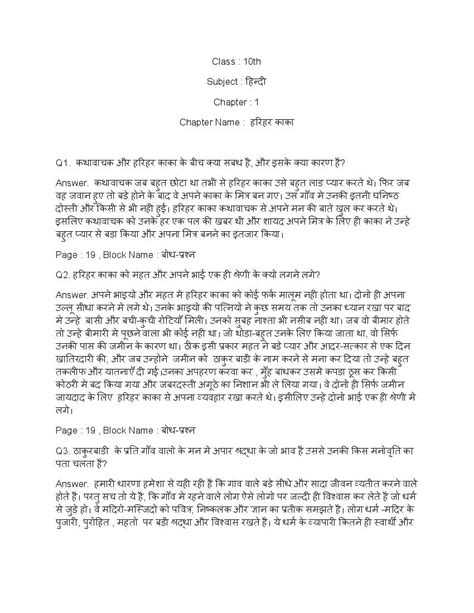 Class : 10th
Subject : हिन्दी
Chapter : 1
Chapter Name : हरिहर काका
Q1. कथावाचक और हरिहर काका के बीच क्या सबध है, और इसके क्या कारण है?
Answer. कथावाचक जब बहुत छोटा था तभी से हरिहर काका उसे बहुत लाड प्यार करते थे। फिर जब
वह जवान हुए तो बडे होने के बाद वे अपने काका के मित्र बन गए। उस गाँव मे उनकी इतनी घनिष्ठ
दोस्ती और किसी से भी नही हुई। हरिहर काका कथावाचक से अपने मन की बाते खुल कर करते थे।
इसलिए कथावाचक को उनके हर एक पल की खबर थी और शायद अपने मित्र के लिए ही काका ने उन्हे
बहुत प्यार से बडा किया और अपना मित्र बनने का इतजार किया।
Page : 19 , Block Name : बोध-प्रश्न
Q2. हरिहर काका को महत और अपने भाई एक ही श्रेणी के क्यो लगने लगे?
Answer. अपने भाइयो और महत मे हरिहर काका को कोई फर्क मालूम नही होता था। दोनो ही अपना
उल्लू सीधा करने मे लगे थे। उनके भाइयो की पत्नियो ने कुछ समय तक तो उनका ध्यान रखा पर बाद
मे उन्हे बासी और बची-कुची रोटियाँ मिली। उनको सुबह नाश्ता भी नसीब नही था। जब वो बीमार होते
तो उन्हे बीमारी मे पूछने वाला भी कोई नही था। जो थोडा-बहुत उनके लिए किया जाता था, वो सिर्फ
उनकी पास की जमीन के कारण था। ठीक इसी प्रकार महत ने बडे प्यार और आदर-सत्कार से एक दिन
खातिरदारी की, और जब उन्होने जमीन को ठाकुर बाडी के नाम करने से मना कर दिया तो उन्हे बहुत
तकलीफ और यातनाएँ दी गई।उनका अपहरण करवा कर , मुँह बांधकर उसमे कपडा ठूस कर किसी
कोठरी मे बद किया गया और जबरदस्ती अगूठे का निशान भी ले लिया गया। वे दोनो ही सिर्फ जमीन
जायदाद के लिए हरिहर काका से अपना व्यवहार रखा करते थे। इसीलिए उन्हे दोनो भाई एक ही श्रेणी मे
लगे।
Page : 19 , Block Name : बोध-प्रश्न
Q3. ठाकुरबाडी के प्रति गाँव वालो के मन मे अपार श्रद्धा के जो भाव है उससे उनकी किस मनोवृति का
पता चलता है?
Answer. हमारी धारणा हमेशा से यही रही है कि गाव वाले बडे सीधे और सादा जीवन व्यतीत करने वाले
होते है। परतु सच तो ये है, कि गाँव मे रहने वाले लोग ऐसे लोगो पर जल्दी ही विश्वास कर लेते है जो धर्म
से जुडे हो। वे मदिरो-मस्जिदो को पवित्र, निष्कलक और ज्ञान का प्रतीक समझते है। लोग धर्म -मदिर के
पुजारी, पुरोहित , महतो पर बडी श्रद्धा और विश्वास रखते है। ये धर्म के व्यापारी कितने ही स्वार्थी और